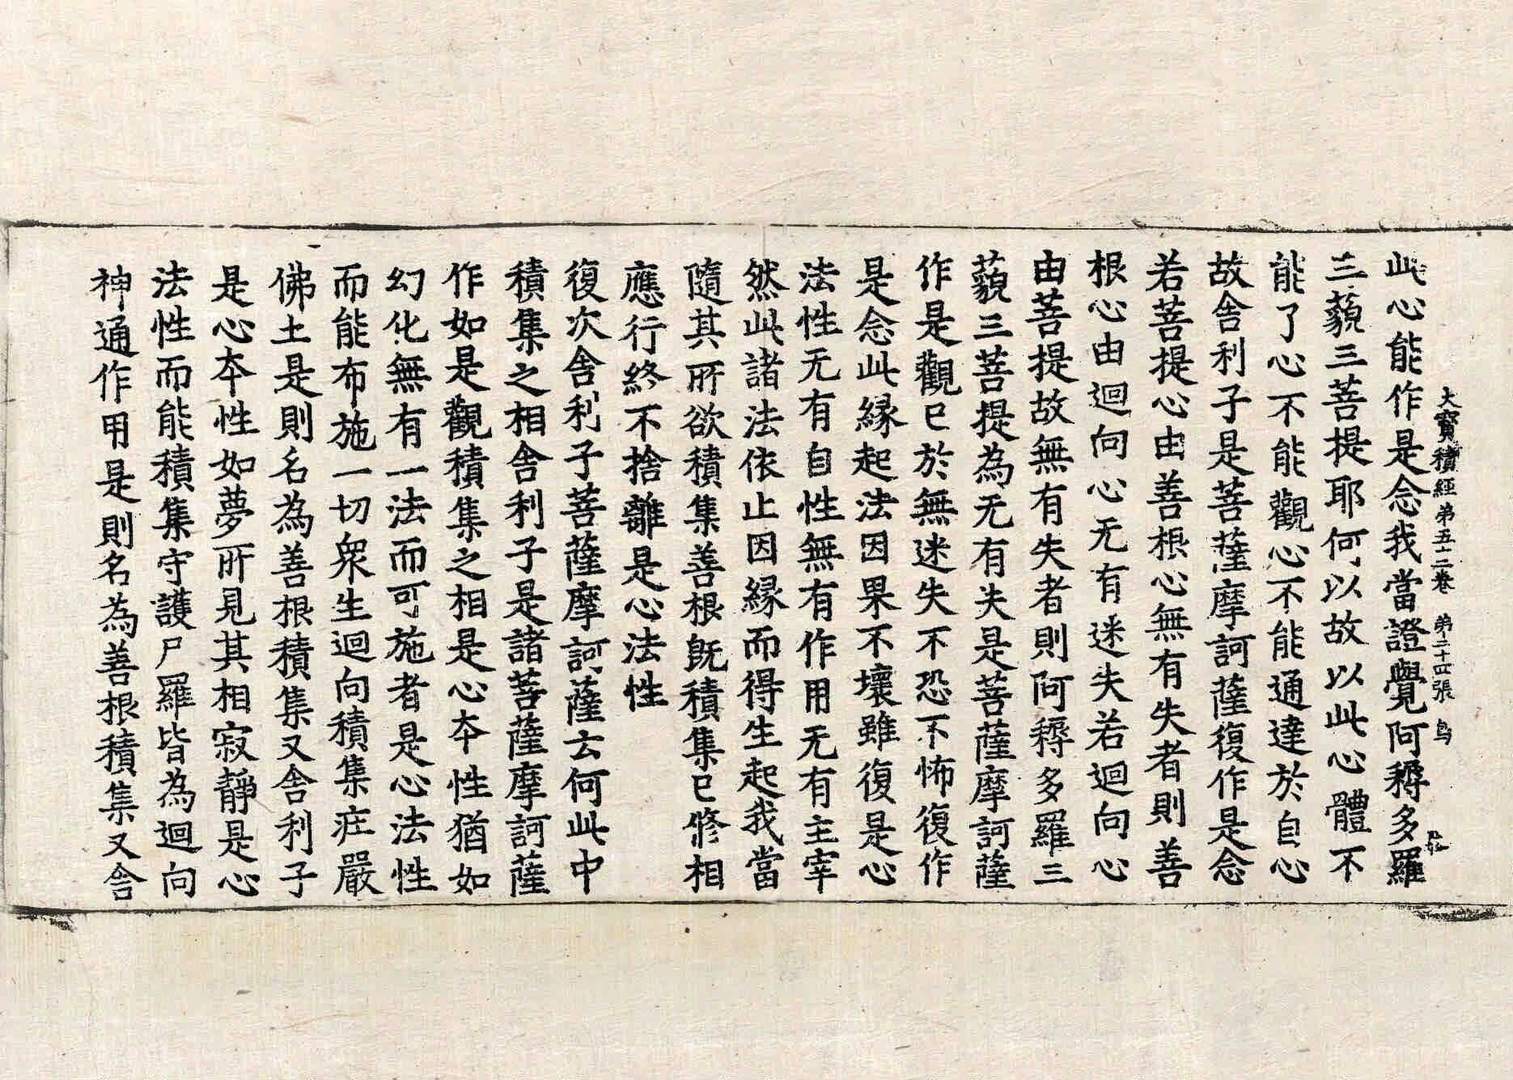 大寶積經第五十二卷 第二十四張 鳥
此心能作是念我當證覺阿耨多羅
三藐三菩提耶何以故以此心體不
能了心不能觀心不能通達於自心
故舍利子是菩薩摩訶薩復作是念
若菩提心由善根心無有失者則善
根心由迴向心无有迷失若迴向心
由菩提故無有失者則阿耨多羅三
藐三菩提為无有失是菩薩摩訶薩
作是觀已於無迷失不恐不怖復作
是念此緣起法因果不壞雖復是心
法性无有自性無有作用无有主宰
然此諸法依止因緣而得生起我當
隨其所欲積集善根既積集已修相
應行終不捨離是心法性
復次舍利子菩薩摩訶薩云何此中
積集之相舍利子是諸菩薩摩訶薩
作如是觀積集之相是心本性猶如
幻化無有一法而可施者是心法性
而能布施一切眾生迴向積集庄嚴
佛土是則名為善根積集又舍利子
是心本性如夢所見其相寂靜是心
法性而能積集守護尸羅皆為迴向
神通作用是則名為善根積集又舍